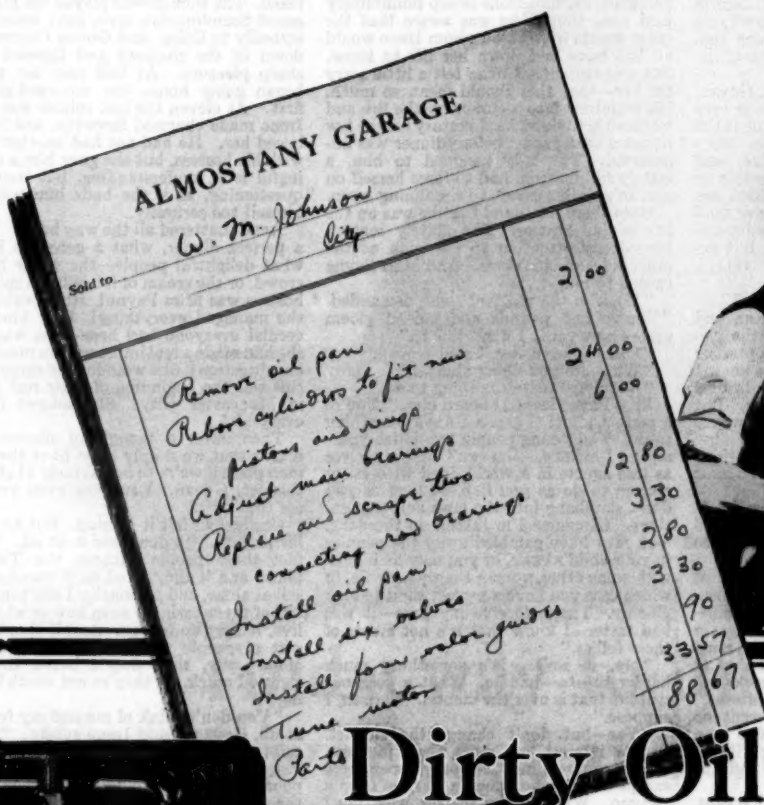 ALMOSTANY GARAGE
Sold to W. M. Johnson
City
Remove oil pan 2 00
Rebore cylinders to fit new
pistons and rings 24 00
Adjust main bearings 6 00
Replace and scrape two
connecting rod bearings 12 80
Install oil pan 3 30
Install six valves 2 80
Install four valve guides 3 30
Tune motor 90
Parts 33 57
88 67
Dirty Oil